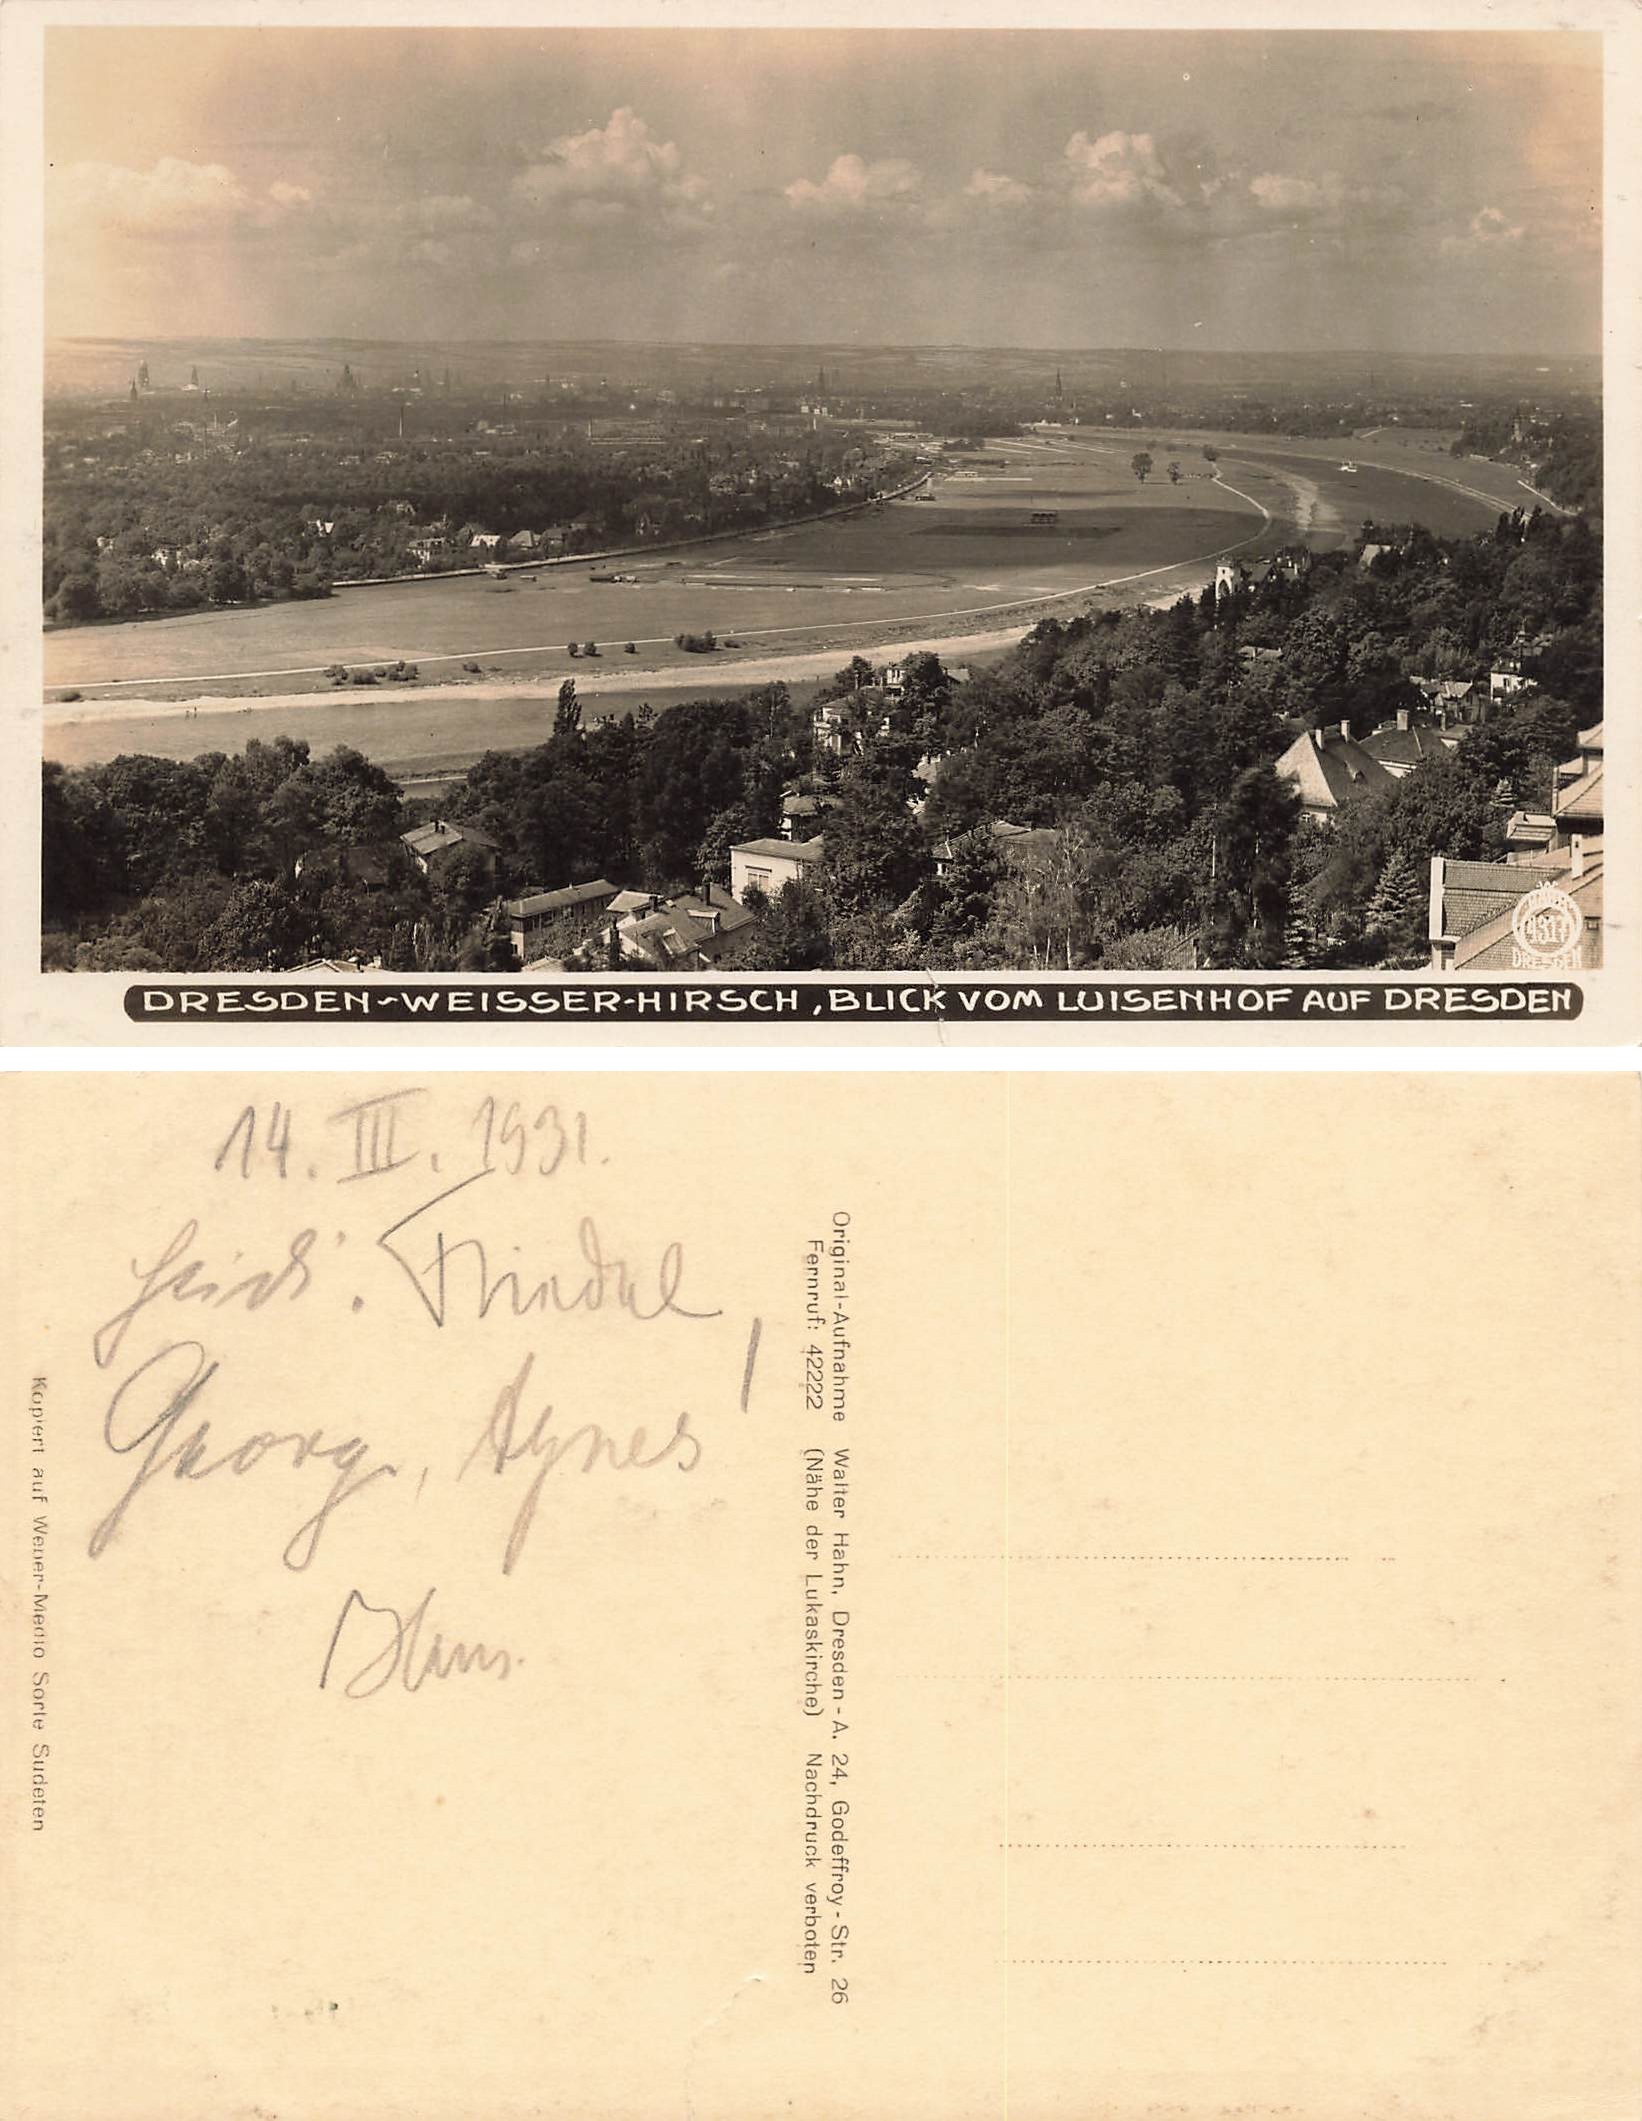 4317
DRESDEN
DRESDEN-WEISSER-HIRSCH, BLICK VOM LUISENHOF AUF DRESDEN
14. III. 1931.
Heidi. Friedel,
Georg, Agnes
Hans.
Original-Aufnahme Walter Hahn, Dresden-A. 24, Godeffroy-Str. 26
Fernruf: 42222 (Nähe der Lukaskirche) Nachdruck verboten
Kopiert auf Wener-Medio Sorte Sudeten